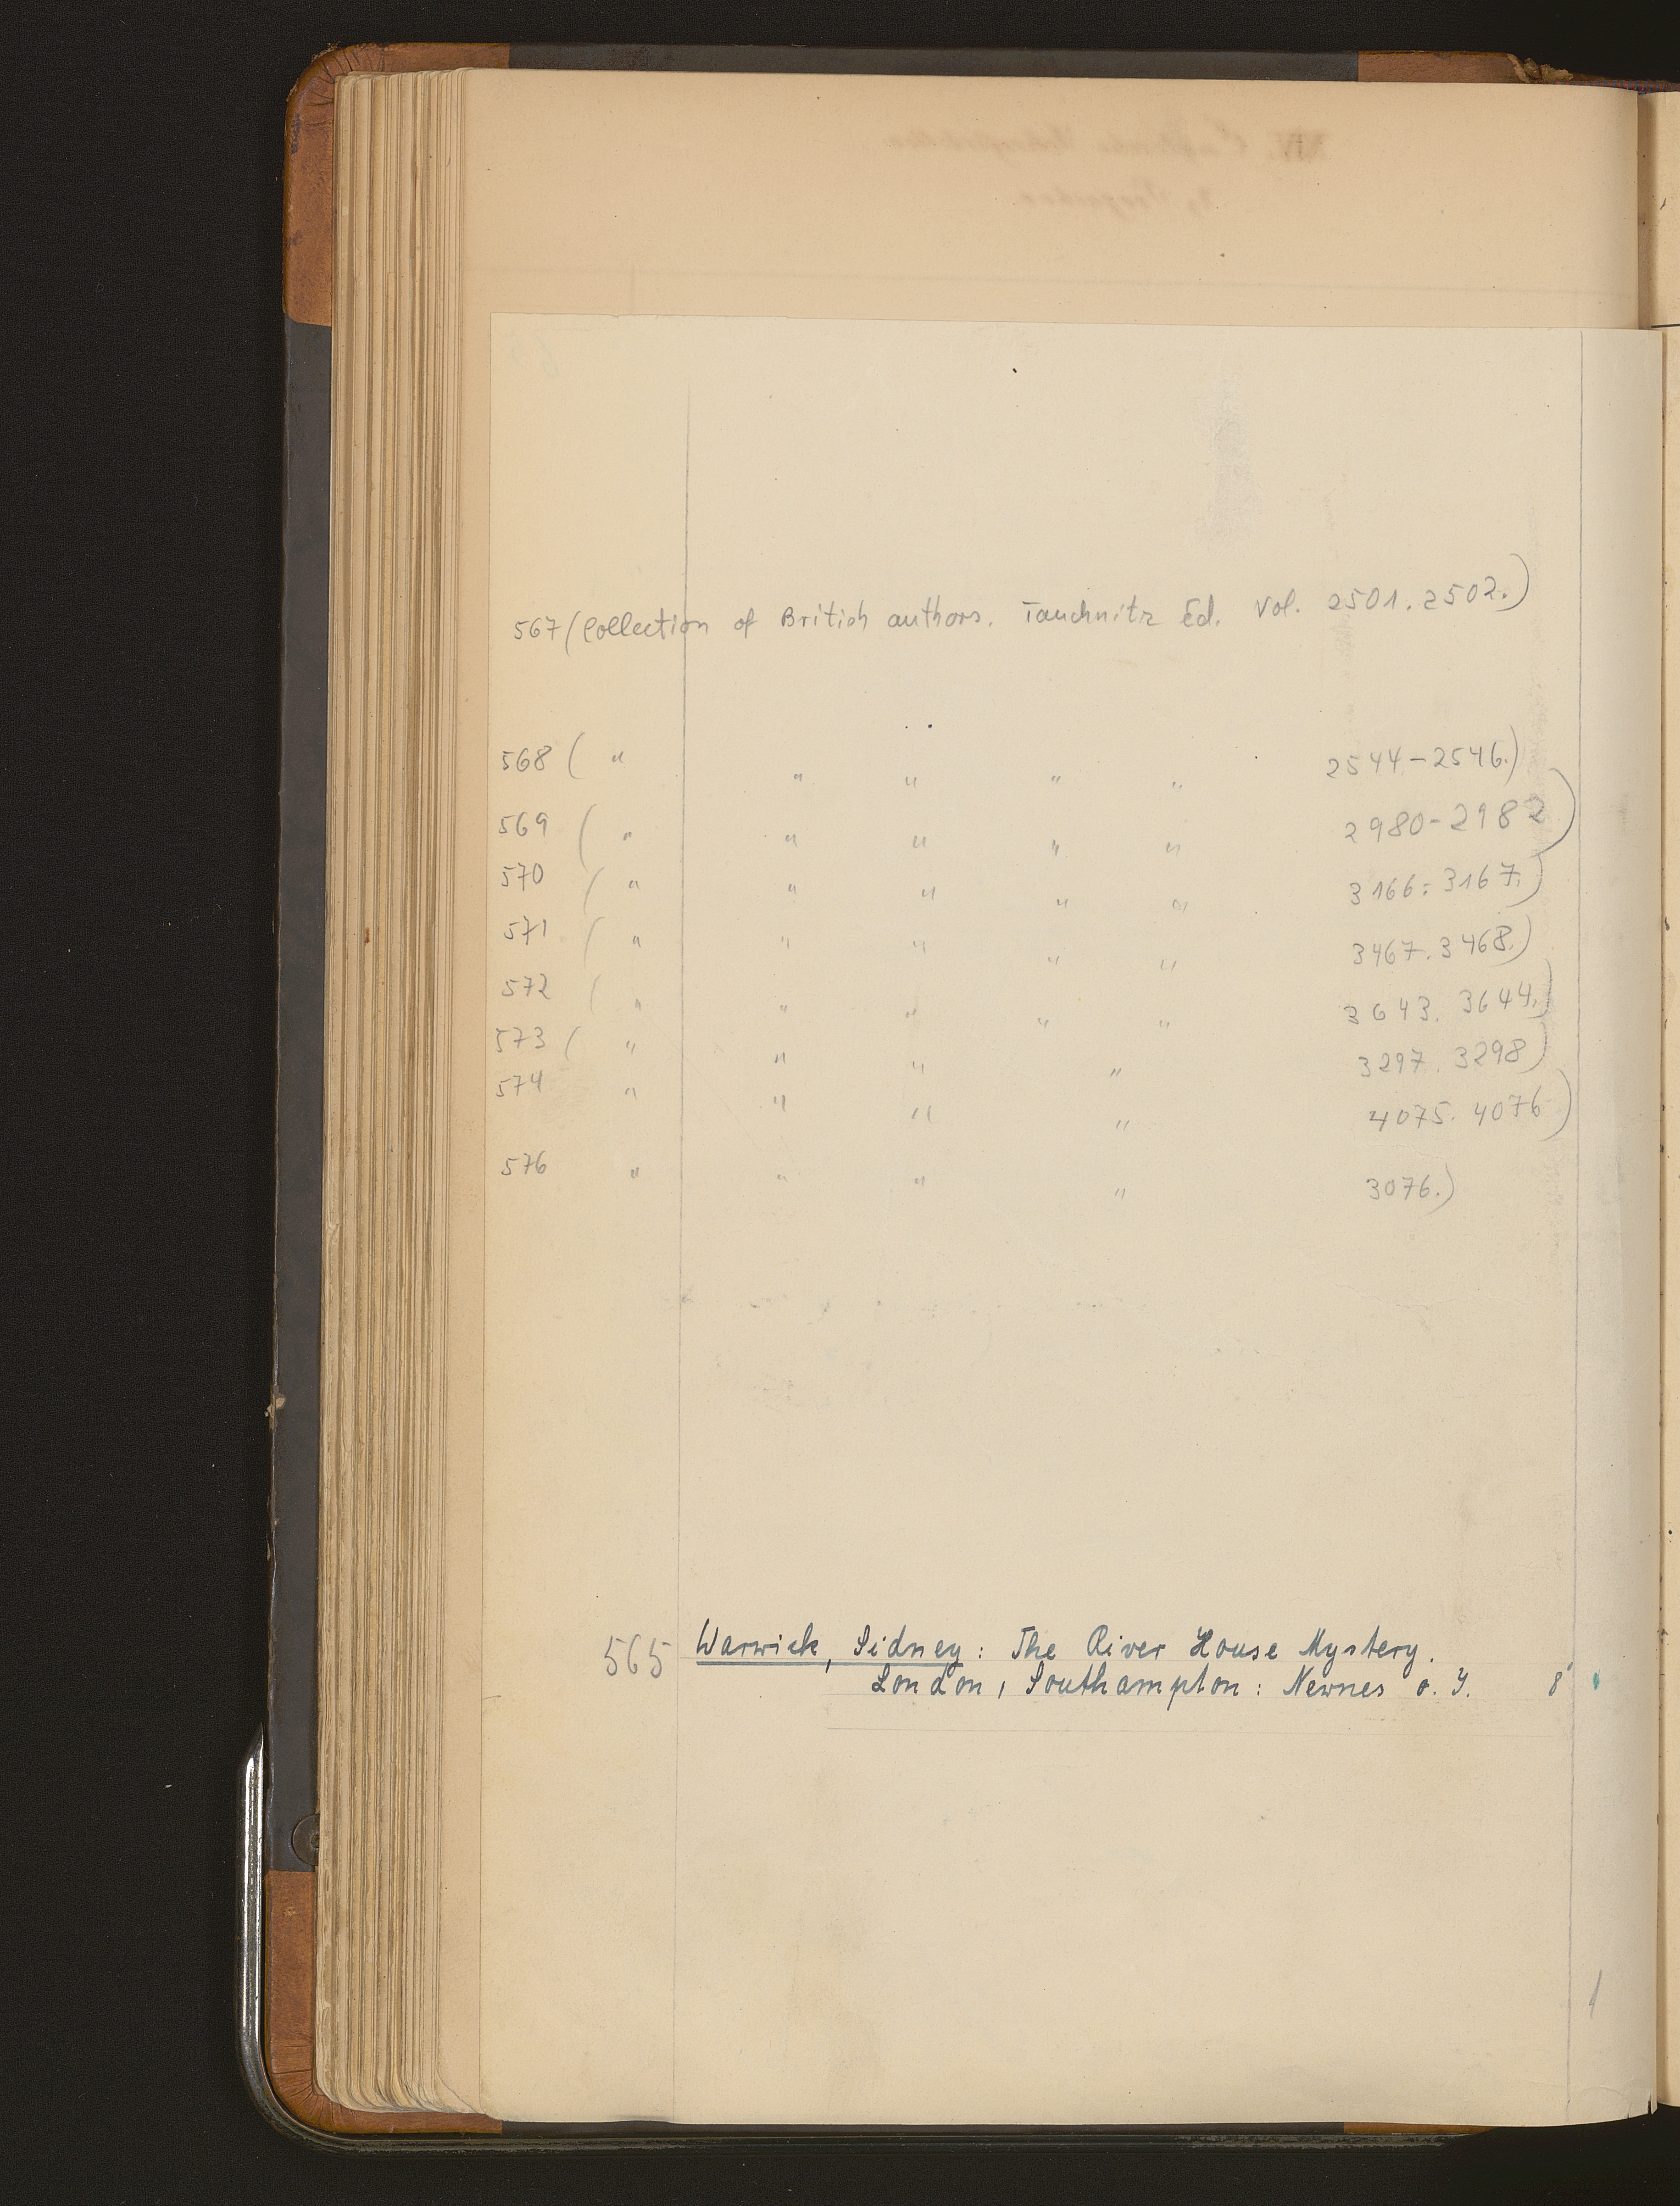 567 (Collection of British authors. Tauchnitz Ed. Vol. 2501. 2502.)
568 ( " " " " " 2544-2546.)
569 ( " " " " " 2980-2982)
570 ( " " " " " 3166. 3167.)
571 ( " " " " " 3467. 3468.)
572 ( " " " " " 3643. 3644.)
573 ( " " " " 3297. 3298)
574 " " " " 4075. 4076)
576 " " " " 3076.)
565 Warwick, Sidney: The River House Mystery.
London, Southampton: Newnes o. J. 8°
1